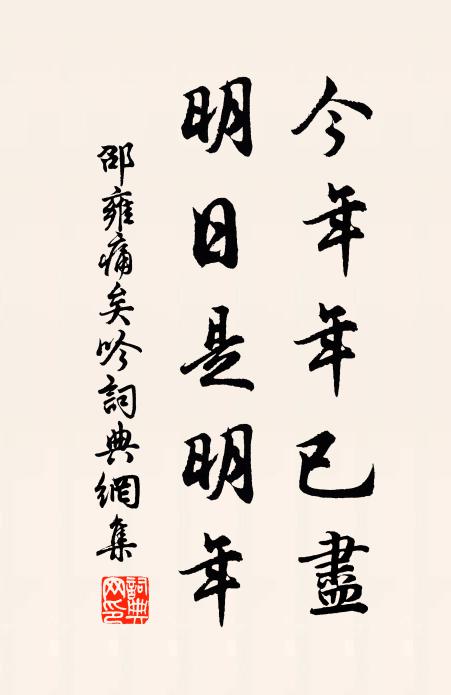 今年年已盡
明日是明年
邵雍痛矣吟詞典網集
詞典網印